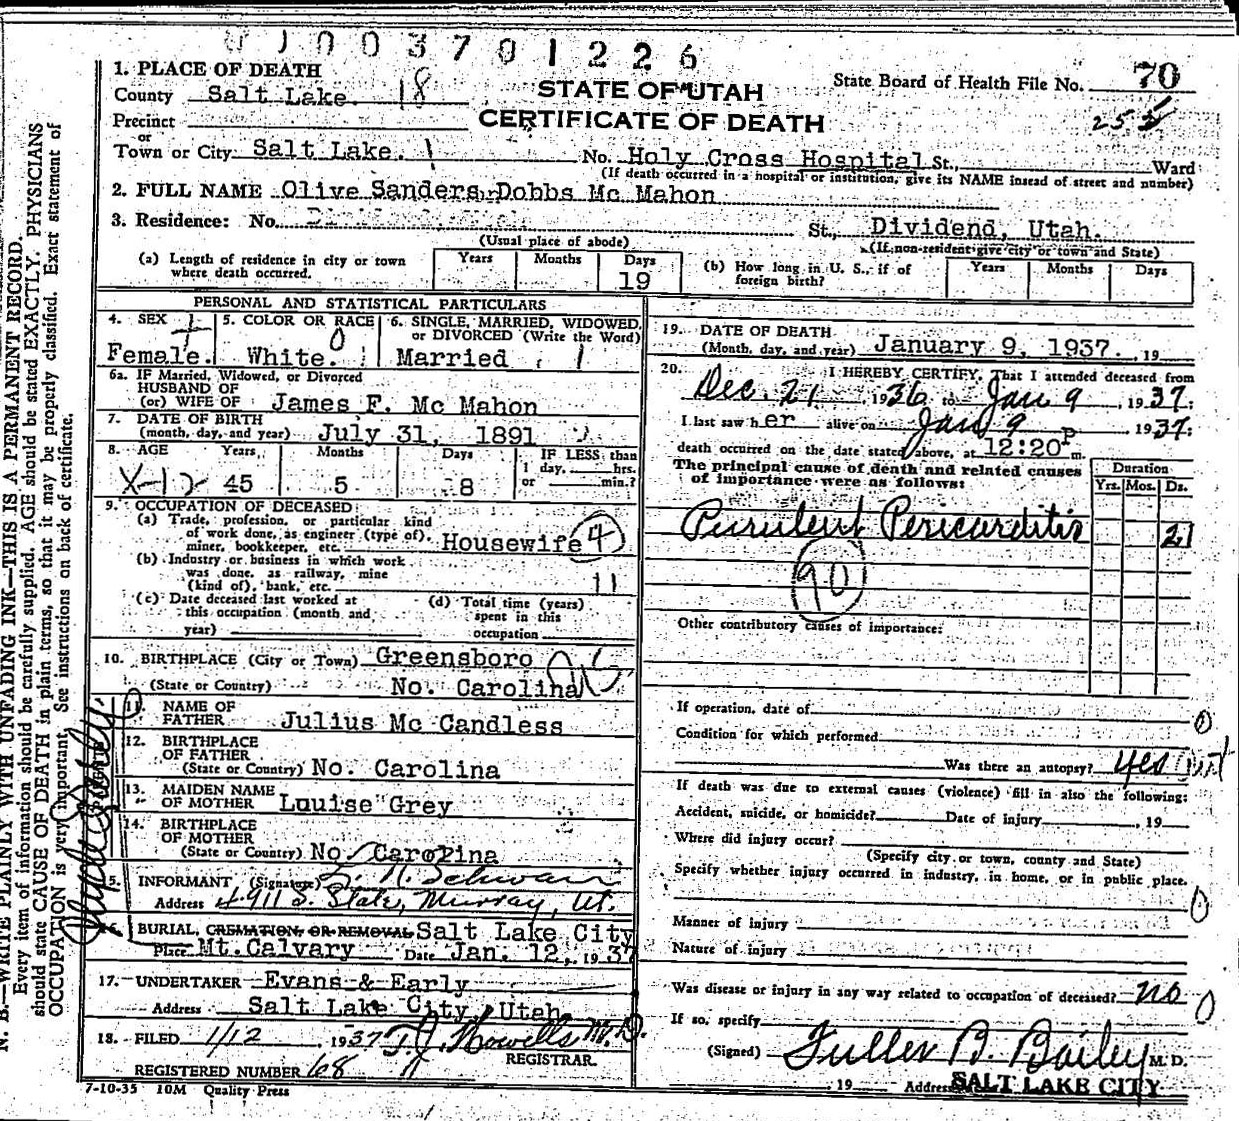 003701226
1. PLACE OF DEATH
County Salt Lake. 18
STATE OF UTAH
State Board of Health File No. 70
Precinct
CERTIFICATE OF DEATH
255
or
Town or City Salt Lake. 1 No. Holy Cross Hospital St., Ward
(If death occurred in a hospital or institution, give its NAME insead of street and number)
2. FULL NAME Olive Sanders Dobbs Mc Mahon
3. Residence: No. St., Dividend, Utah.
(Usual place of abode) (If non-resident give city or town and State)
(a) Length of residence in city or town where death occurred. Years Months Days 19
(b) How long in U. S., if of foreign birth? Years Months Days
PERSONAL AND STATISTICAL PARTICULARS
4. SEX Female.
5. COLOR OR RACE White. 0
6. SINGLE, MARRIED, WIDOWED, or DIVORCED (Write the Word) Married 1
6a. IF Married, Widowed, or Divorced
HUSBAND OF
(or) WIFE OF James F. Mc Mahon
7. DATE OF BIRTH
(month, day, and year) July 31, 1891
8. AGE Years Months Days IF LESS than
1 day, hrs.
or min.?
45 5 8
9. OCCUPATION OF DECEASED
(a) Trade, profession, or particular kind
of work done, as engineer (type of),
miner, bookkeeper, etc. Housewife 4
(b) Industry or business in which work
was done, as railway, mine
(kind of), bank, etc. 11
(c) Date deceased last worked at
this occupation (month and
year)
(d) Total time (years)
spent in this
occupation
10. BIRTHPLACE (City or Town) Greensboro
(State or Country) No. Carolina
11. NAME OF
FATHER Julius Mc Candless
12. BIRTHPLACE
OF FATHER
(State or Country) No. Carolina
13. MAIDEN NAME
OF MOTHER Louise Grey
14. BIRTHPLACE
OF MOTHER
(State or Country) No. Carolina
15. INFORMANT (Signature)
Address 4911 S. State, Murray, Ut.
BURIAL, CREMATION, OR REMOVAL Salt Lake City
Place Mt. Calvary Date Jan. 12, 1937
17. UNDERTAKER Evans & Early
Address Salt Lake City, Utah
18. FILED 1/12 1937 T. J. Howells M.D.
REGISTRAR.
REGISTERED NUMBER 68
7-10-35 10M Quality Press
19. DATE OF DEATH
(Month, day, and year) January 9, 1937. , 19
20. I HEREBY CERTIFY, That I attended deceased from
Dec. 21, 1936 to Jan 9, 1937;
I last saw her alive on Jan 9 1937;
death occurred on the date stated above, at 12:20 P m.
The principal cause of death and related causes
of importance were as follows:
Duration
Yrs. Mos. Ds.
Purulent Pericarditis 21
90
Other contributory causes of importance:
If operation, date of
Condition for which performed
Was there an autopsy? yes
If death was due to external causes (violence) fill in also the following:
Accident, suicide, or homicide? Date of injury , 19
Where did injury occur?
(Specify city or town, county and State)
Specify whether injury occurred in industry, in home, or in public place.
Manner of injury
Nature of injury
Was disease or injury in any way related to occupation of deceased? no
If so, specify
(Signed) Fuller B. Bailey M. D.
19 Address SALT LAKE CITY
N. B.—WRITE PLAINLY WITH UNFADING INK—THIS IS A PERMANENT RECORD.
Every item of information should be carefully supplied. AGE should be stated EXACTLY. PHYSICIANS
should state CAUSE OF DEATH in plain terms, so that it may be properly classified. Exact statement of
OCCUPATION is very important. See instructions on back of certificate.